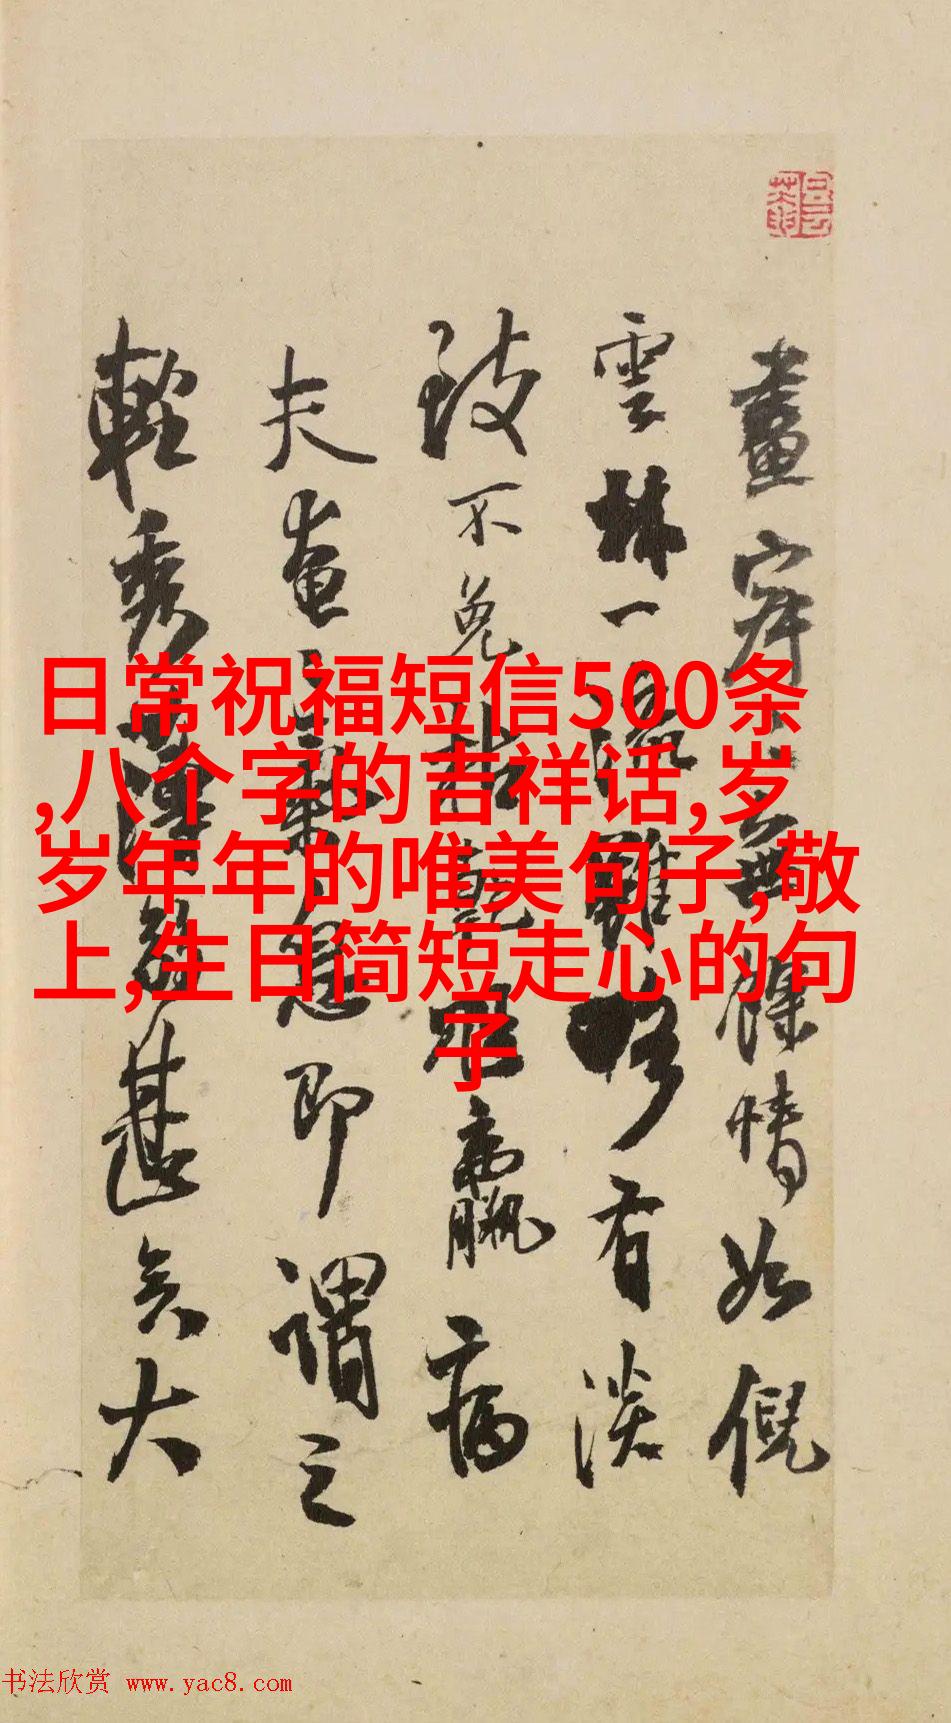 日常祝福短信500条
,八个字的吉祥话,岁
岁年年的唯美句子,敬
上,生日简短走心的句
子
畫家
無餘情如倪
雲林一
雖
有淡
致不免枯乾
羸病
夫畫
即謂之
輕秀薄弱甚矣大
书法欣赏 www.yac8.com